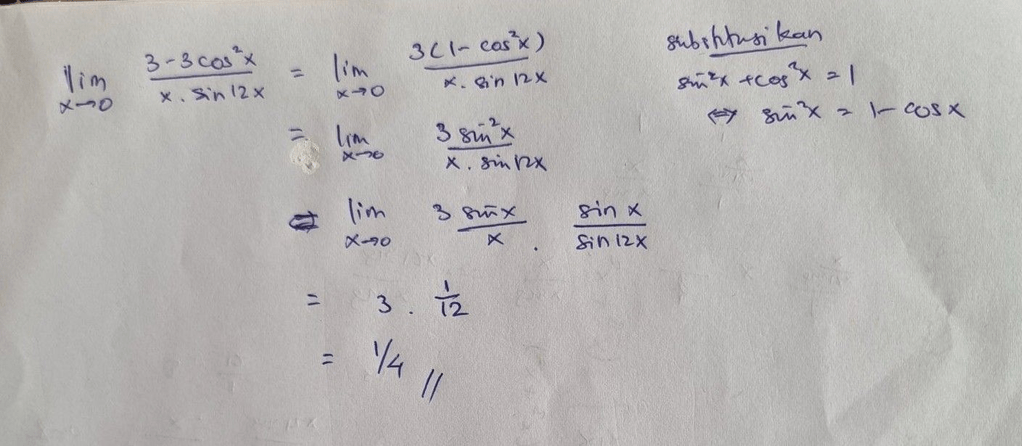 lim x→0 3-3cos²x / x . sin 12x = lim x→0 3(1-cos²x) / x . sin 12x
= lim x→0 3 sin²x / x . sin 12x
= lim x→0 3 sin x / x . sin x / sin 12x
= 3 . 1/12
= 1/4 //
substitusikan
sin²x + cos²x = 1
⇔ sin²x = 1 - cos x